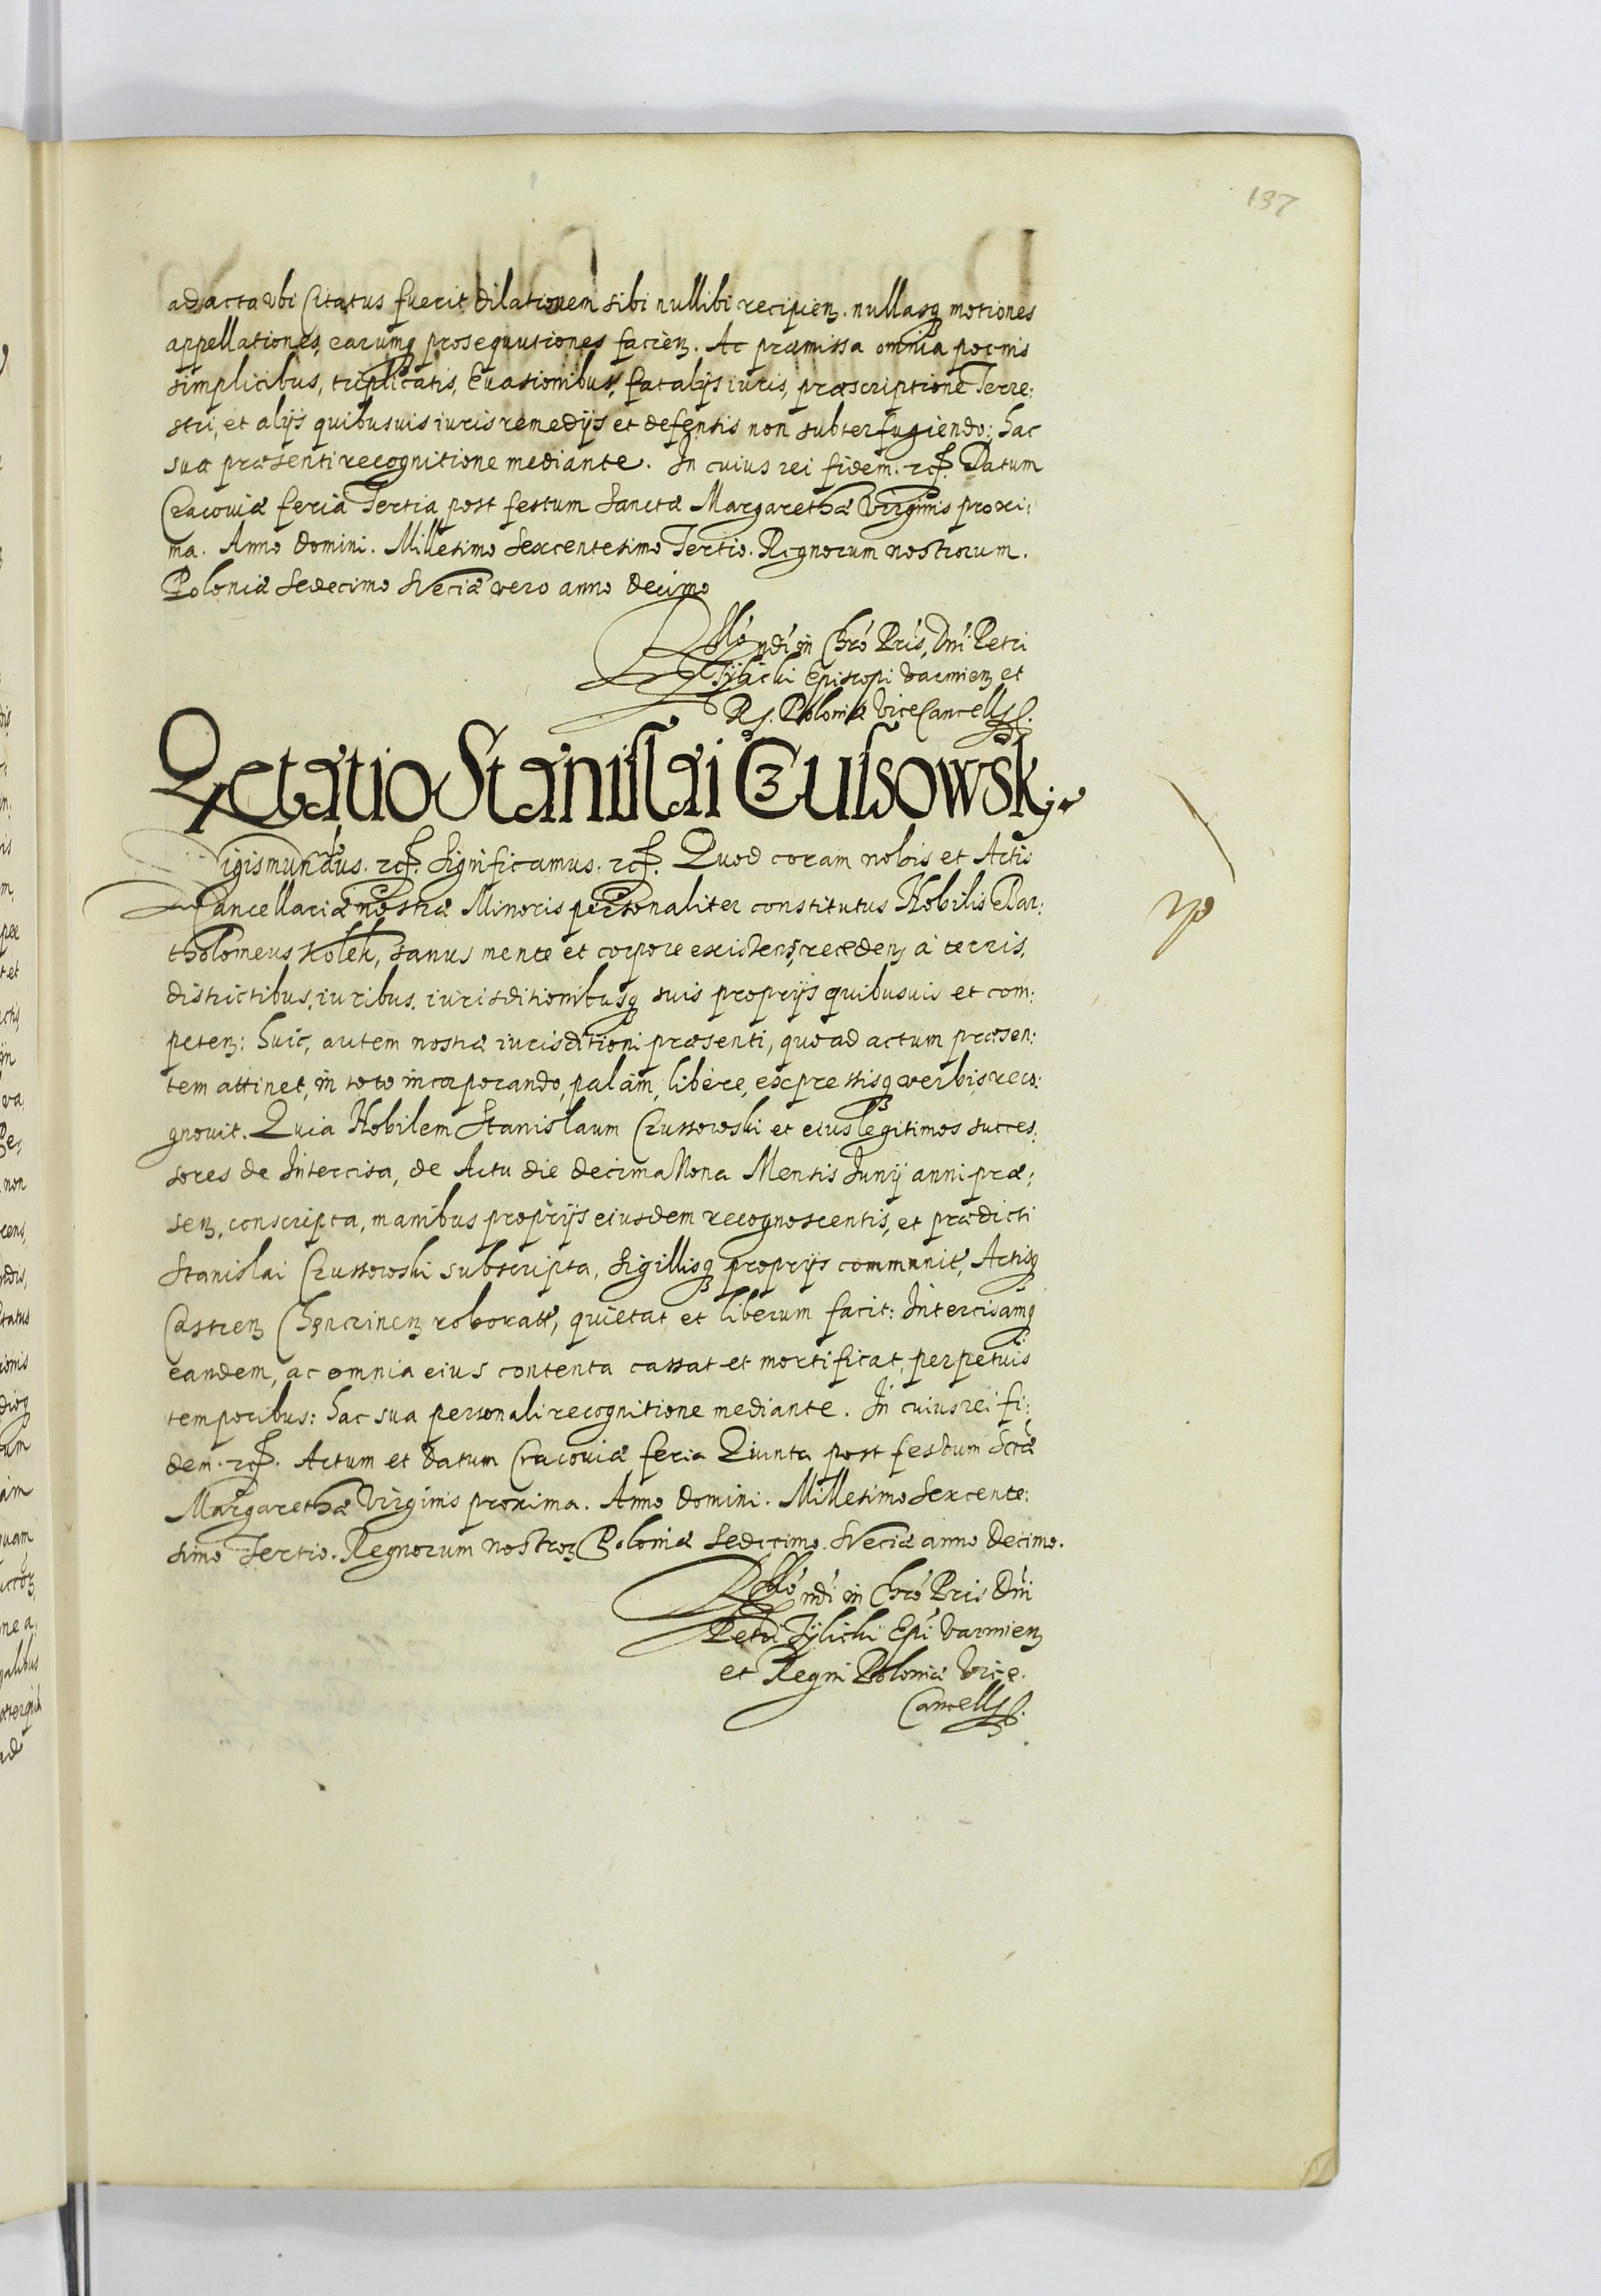 137
ad acta vbi Citatus fuerit dilationem sibi nullibi recipien. nullasq motiones
appellationes, earumq prosequutiones facien. Ac præmissa omnia poenis
simplicibus, triplicatis, Euasionibus, fatalijs iuris, præscriptione Terre:
stri, et alijs quibusuis iuris remedijs et defensis non subterfugiendo: hac
sua præsenti recognitione mediante. In cuius rei fidem. etc. Datum
Cracouiæ feria Tertia post festum Sanctæ Margarethæ Virginis proxi:
ma. Anno Domini. Millesimo Sexcentesimo Tertio. Regnorum nostrorum.
Poloniæ Sedecimo Sueciæ vero anno decimo
Rllo ndi in Chro Pris, Dni Petri
Tylicki Episcopi Varmien et
R. Poloniæ ViceCancell.
Qetatio Stanislai Czussowsk:
Sigismundus. etc. Significamus. etc. Quod coram nobis et Actis
Cancellariæ nostræ Minoris personaliter constitutus Nobilis Bar:
tholomeus Kolek, sanus mente et corpore existens, receden à terris,
districtibus, iuribus, iurisditionibusq suis proprijs quibusuis et com:
peten: huic, autem nostræ iurisditioni præsenti, quoad actum præsen:
tem attinet, in toto incorporando, palàm, liberè, expressisq verbis, reco:
gnouit. Quia Nobilem Stanislaum Czussowski et eius legitimos succes:
sores de Intercisa, de Actu die decima Nona Mensis Junij anni præ:
sen, conscripta, manibus proprijs eiusdem recognoscentis, et prædicti
Stanislai Czussowski subscripta, Sigillisq proprijs communit, Actisq
Castren Chencinen roborat, quietat et liberum facit: Intercisamq
eandem, ac omnia eius contenta cassat et mortificat, perpetuis
temporibus: hac sua personali recognitione mediante. In cuius rei fi:
dem. etc. Actum et Datum Cracouiæ feria Quinta post festum Sctæ
Margarethæ Virginis proxima. Anno Domini. Millesimo Sexcente:
simo Tertio. Regnorum nostror Poloniæ Sedecimo. Sueciæ anno Decimo.
Rllo ndi in Chro Pris Dni
Petri Tylicki Epi Varmien
et Regni Poloniæ Vice.
Cancell.